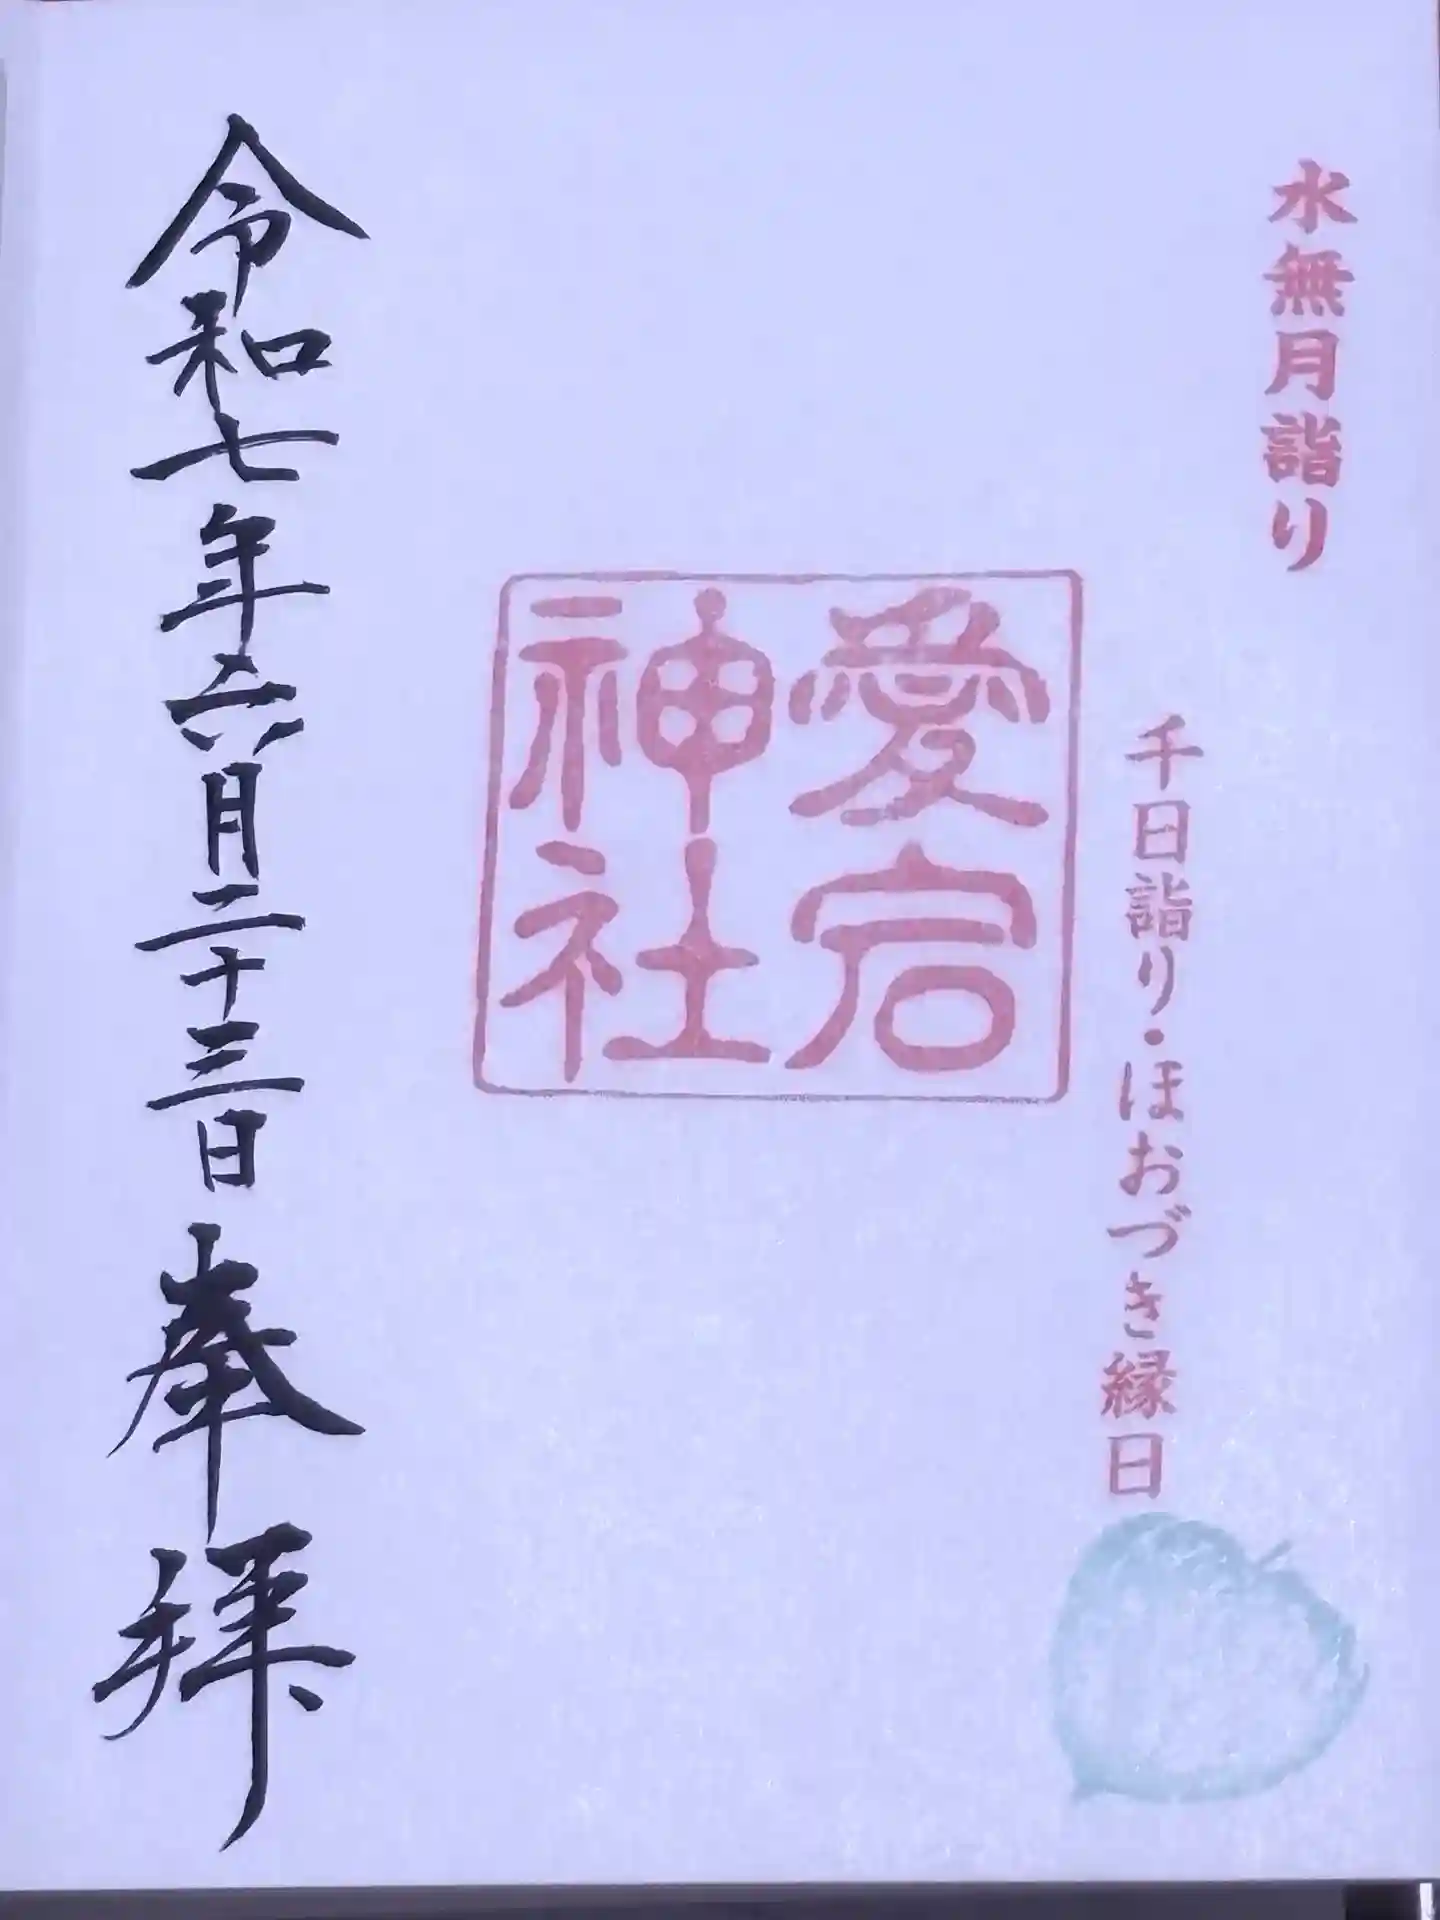 水無月詣り
千日詣り・ほおづき縁日
愛宕
神社
令和七年六月二十三日 奉拝